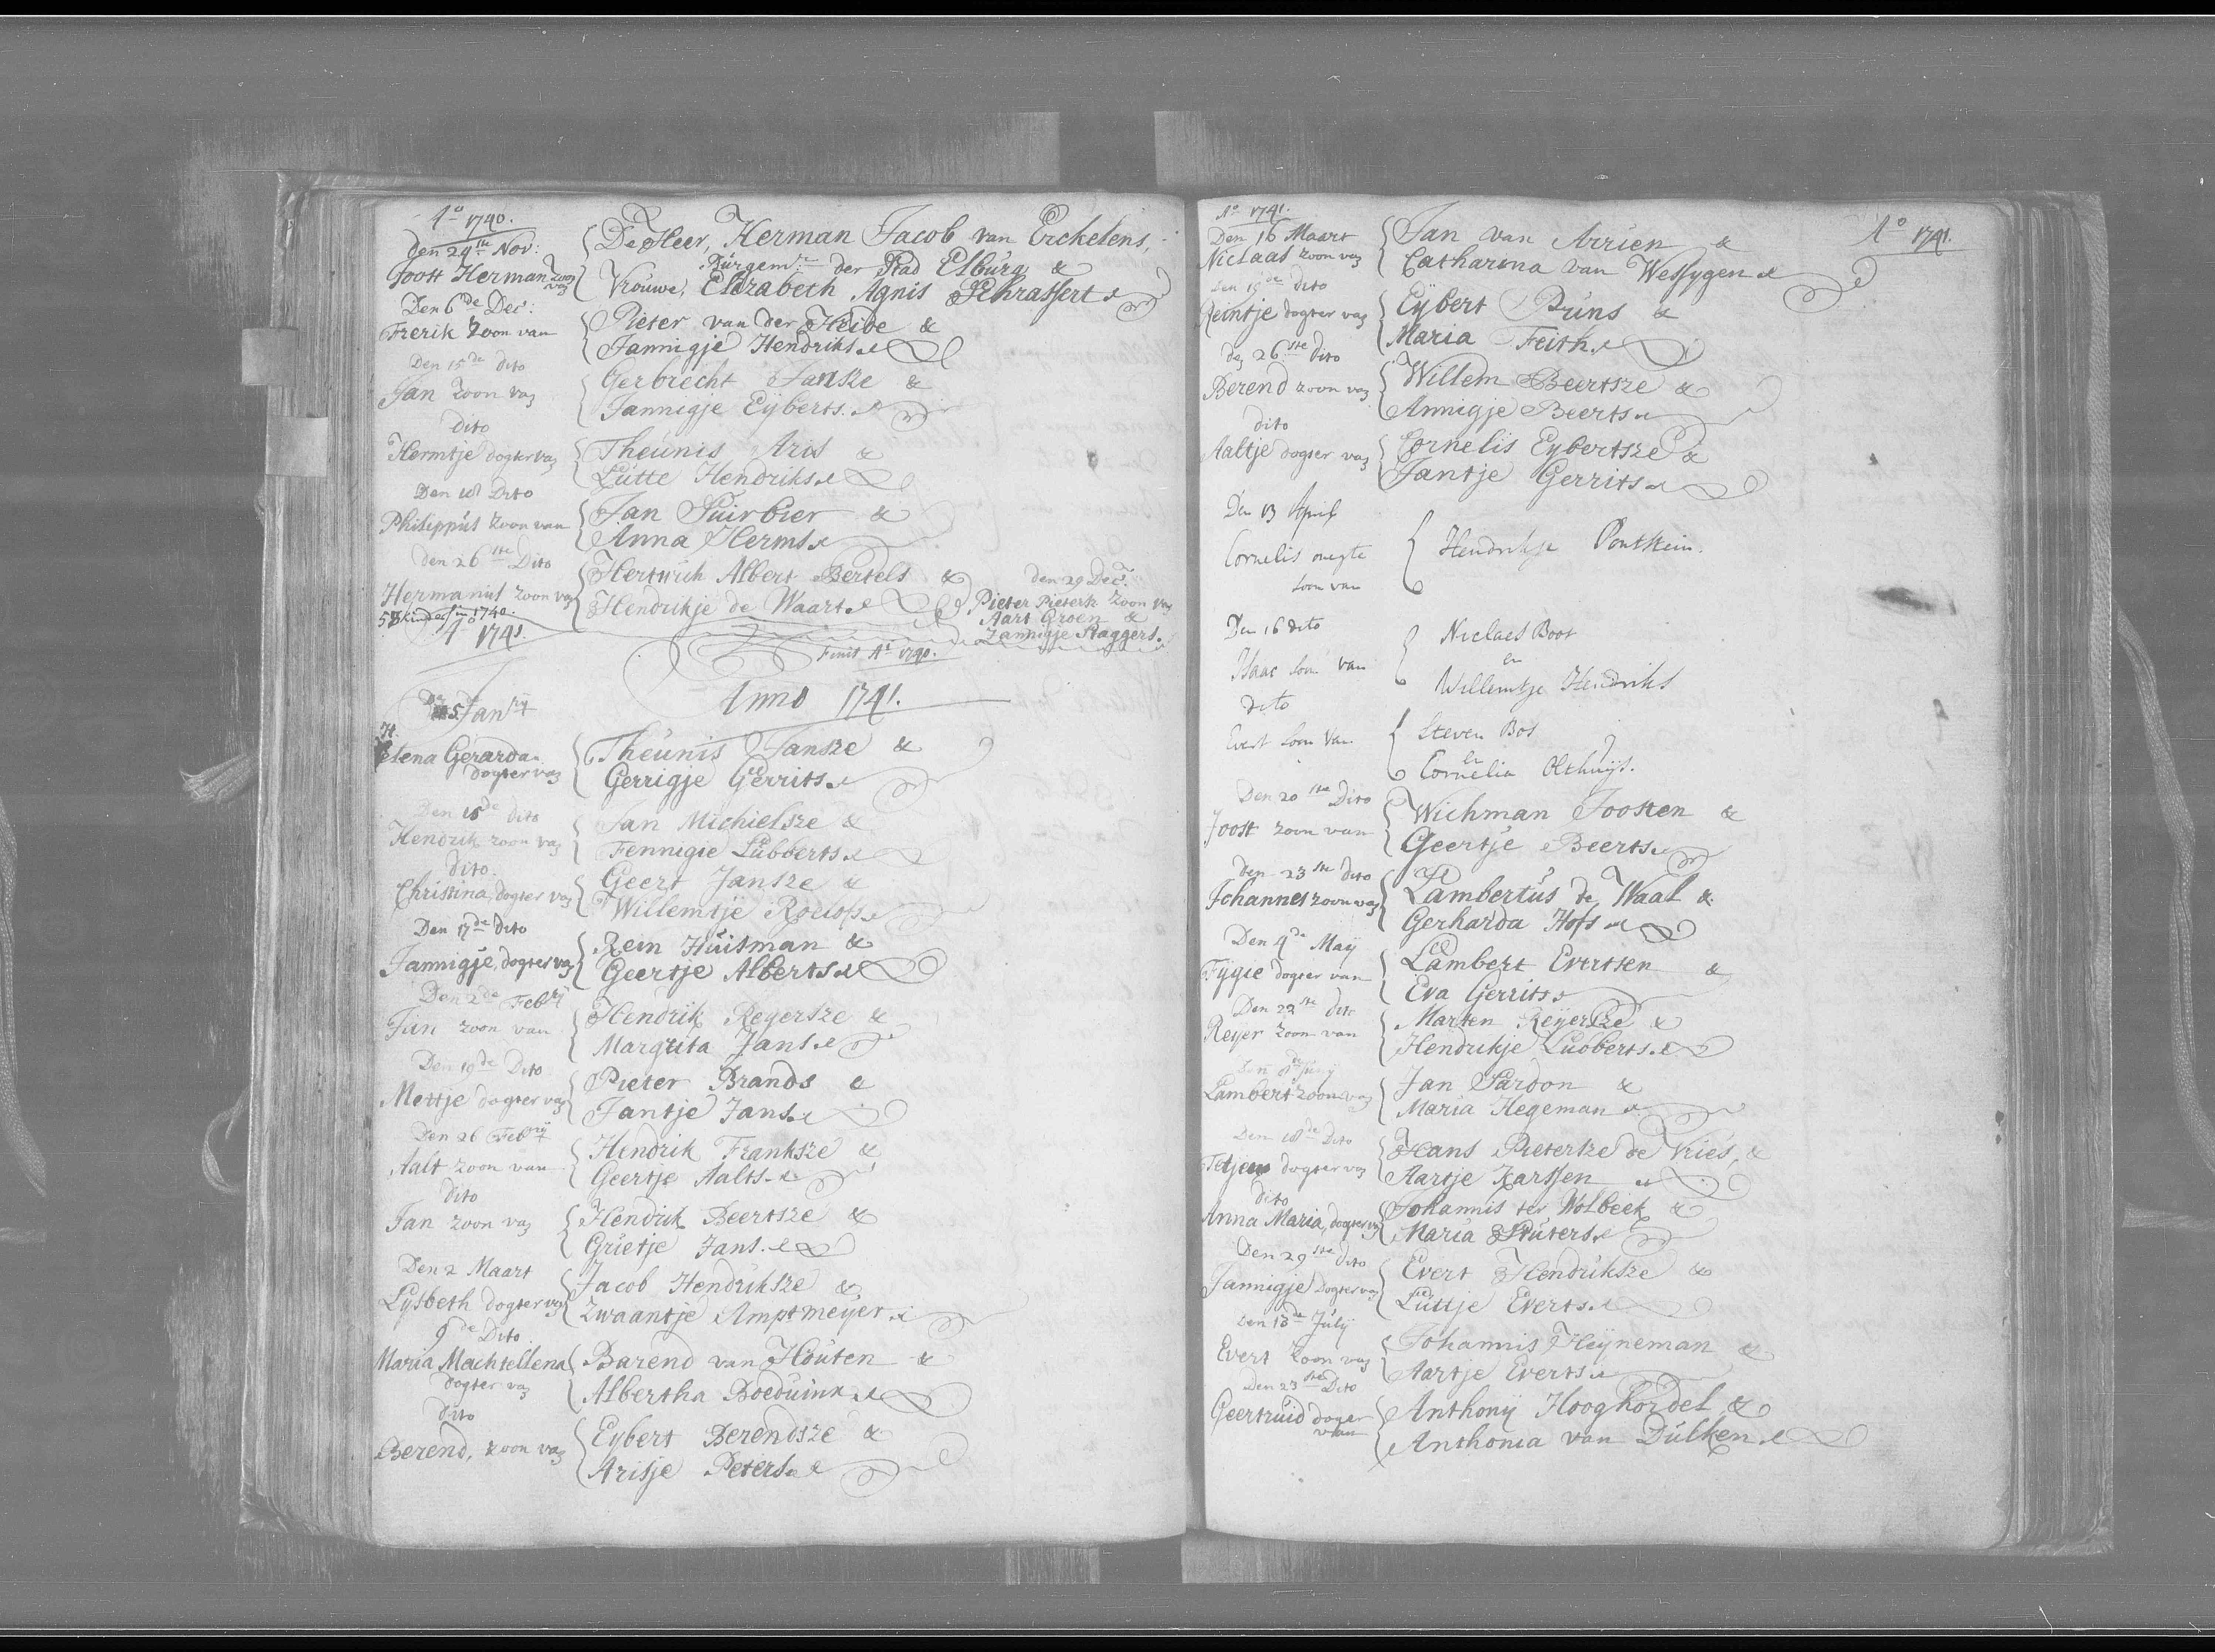 Ao 1740.
den 29ste Nov:
Joost Herman zoon van
De Heer, Herman Jacob van Erckelens,
Burgemr der Stad Elburg &
Vrouwe, Elizabeth Agnis Schrassert
Den 6de Dec:
Frerik zoon van
Pieter van der Heide &
Jannigje Hendriks
Den 15de dito
Jan zoon van
Gerbrecht Jansze &
Jannigje Eyberts
dito
Hermtje dogter van
Theunis Aris &
Lutte Hendriks
Den 18 Dito
Philippus zoon van
Jan Suirbier &
Anna Herms
den 26ste Dito
Hermanus zoon van
Hertwich Albert Bertels &
Hendrikje de Waart
den 29 Dec:
Pieter Pieterk zoon van
Aart Groen &
Jannigje Staggers
58 kinders in 1740.
Ao 1741.
Finis Ao 1740.
Anno 1741.
Den 5 Janrij
Helena Gerarda
dogter van
Theunis Jansze &
Gerrigje Gerrits
Den 15de dito
Hendrik zoon van
Jan Michielsze &
Fennigie Lubberts
dito.
Christina, dogter van
Geert Jansze &
Willemtje Roelofs
Den 17de dito
Jannigje, dogter van
Rein Huisman &
Geertje Alberts
Den 2de Febrij
Jun zoon van
Hendrik Reyersze &
Margrita Jans
Den 19de Dito
Mettje dogter van
Pieter Brands &
Jantje Jans
Den 26 Febrij
Aalt zoon van
Hendrik Franksze &
Geertje Aalts
dito
Jan zoon van
Hendrik Beertsze &
Grietje Jans.
Den 2 Maart
Lysbeth dogter van
Jacob Hendriksze &
Zwaantje Amptmeyer
9de Dito
Maria Machtellena
dogter van
Barend van Houten &
Albertha Boeduinx
dito
Berend, zoon van
Eybert Berendsze &
Arisje Peters
Ao 1741.
Ao 1741.
Den 16 Maart
Niclaas zoon van
Jan van Arrien &
Catharina van Wessygen
den 19de dito
Reintje dogter van
Eybert Pruns &
Maria Feith
den 26ste dito
Berend zoon van
Willem Beertsze &
Annigje Beerts
dito
Aaltje dogter van
Cornelis Eybertsze &
Jantje Gerrits
Den 13 April
Cornelis onegte
soon van
Hendrikje Pontstein.
Den 16 dito
Isaac soon van
Niclaes Boot
en
Willemtje Hendriks
dito
Evert soon van
Steven Bos
en
Cornelia Olthuijs.
Den 20ste Dito
Joost zoon van
Wichman Joosten &
Geertje Beerts
den 23ste dito
Johannes zoon van
Lambertus de Waal &
Gerharda Hofs
Den 4de Maij
Fijgie dogter van
Lambert Evertsen &
Eva Gerrits
Den 22ste dito
Reyer zoon van
Marten Reyersze &
Hendrikje Lubberts
Lambert zoon van
Jan Pardon &
Maria Hegeman
Den 18de Dito
dogter van
Hans Pieterke de Vries, &
Aartje Karssen
dito
Anna Maria, dogter van
Johannis ter Wolbeek &
Maria Sluters
Den 29ste dito
Jannigje Dogter van
Evert Hendriksze &
Luttje Everts
Den 13de Julij
Evert zoon van
Johannis Heyneman &
Aartje Everts
Den 23ste Dito
Geertruid dogter
van
Anthonij Hooghordel &
Anthonia van Dulken